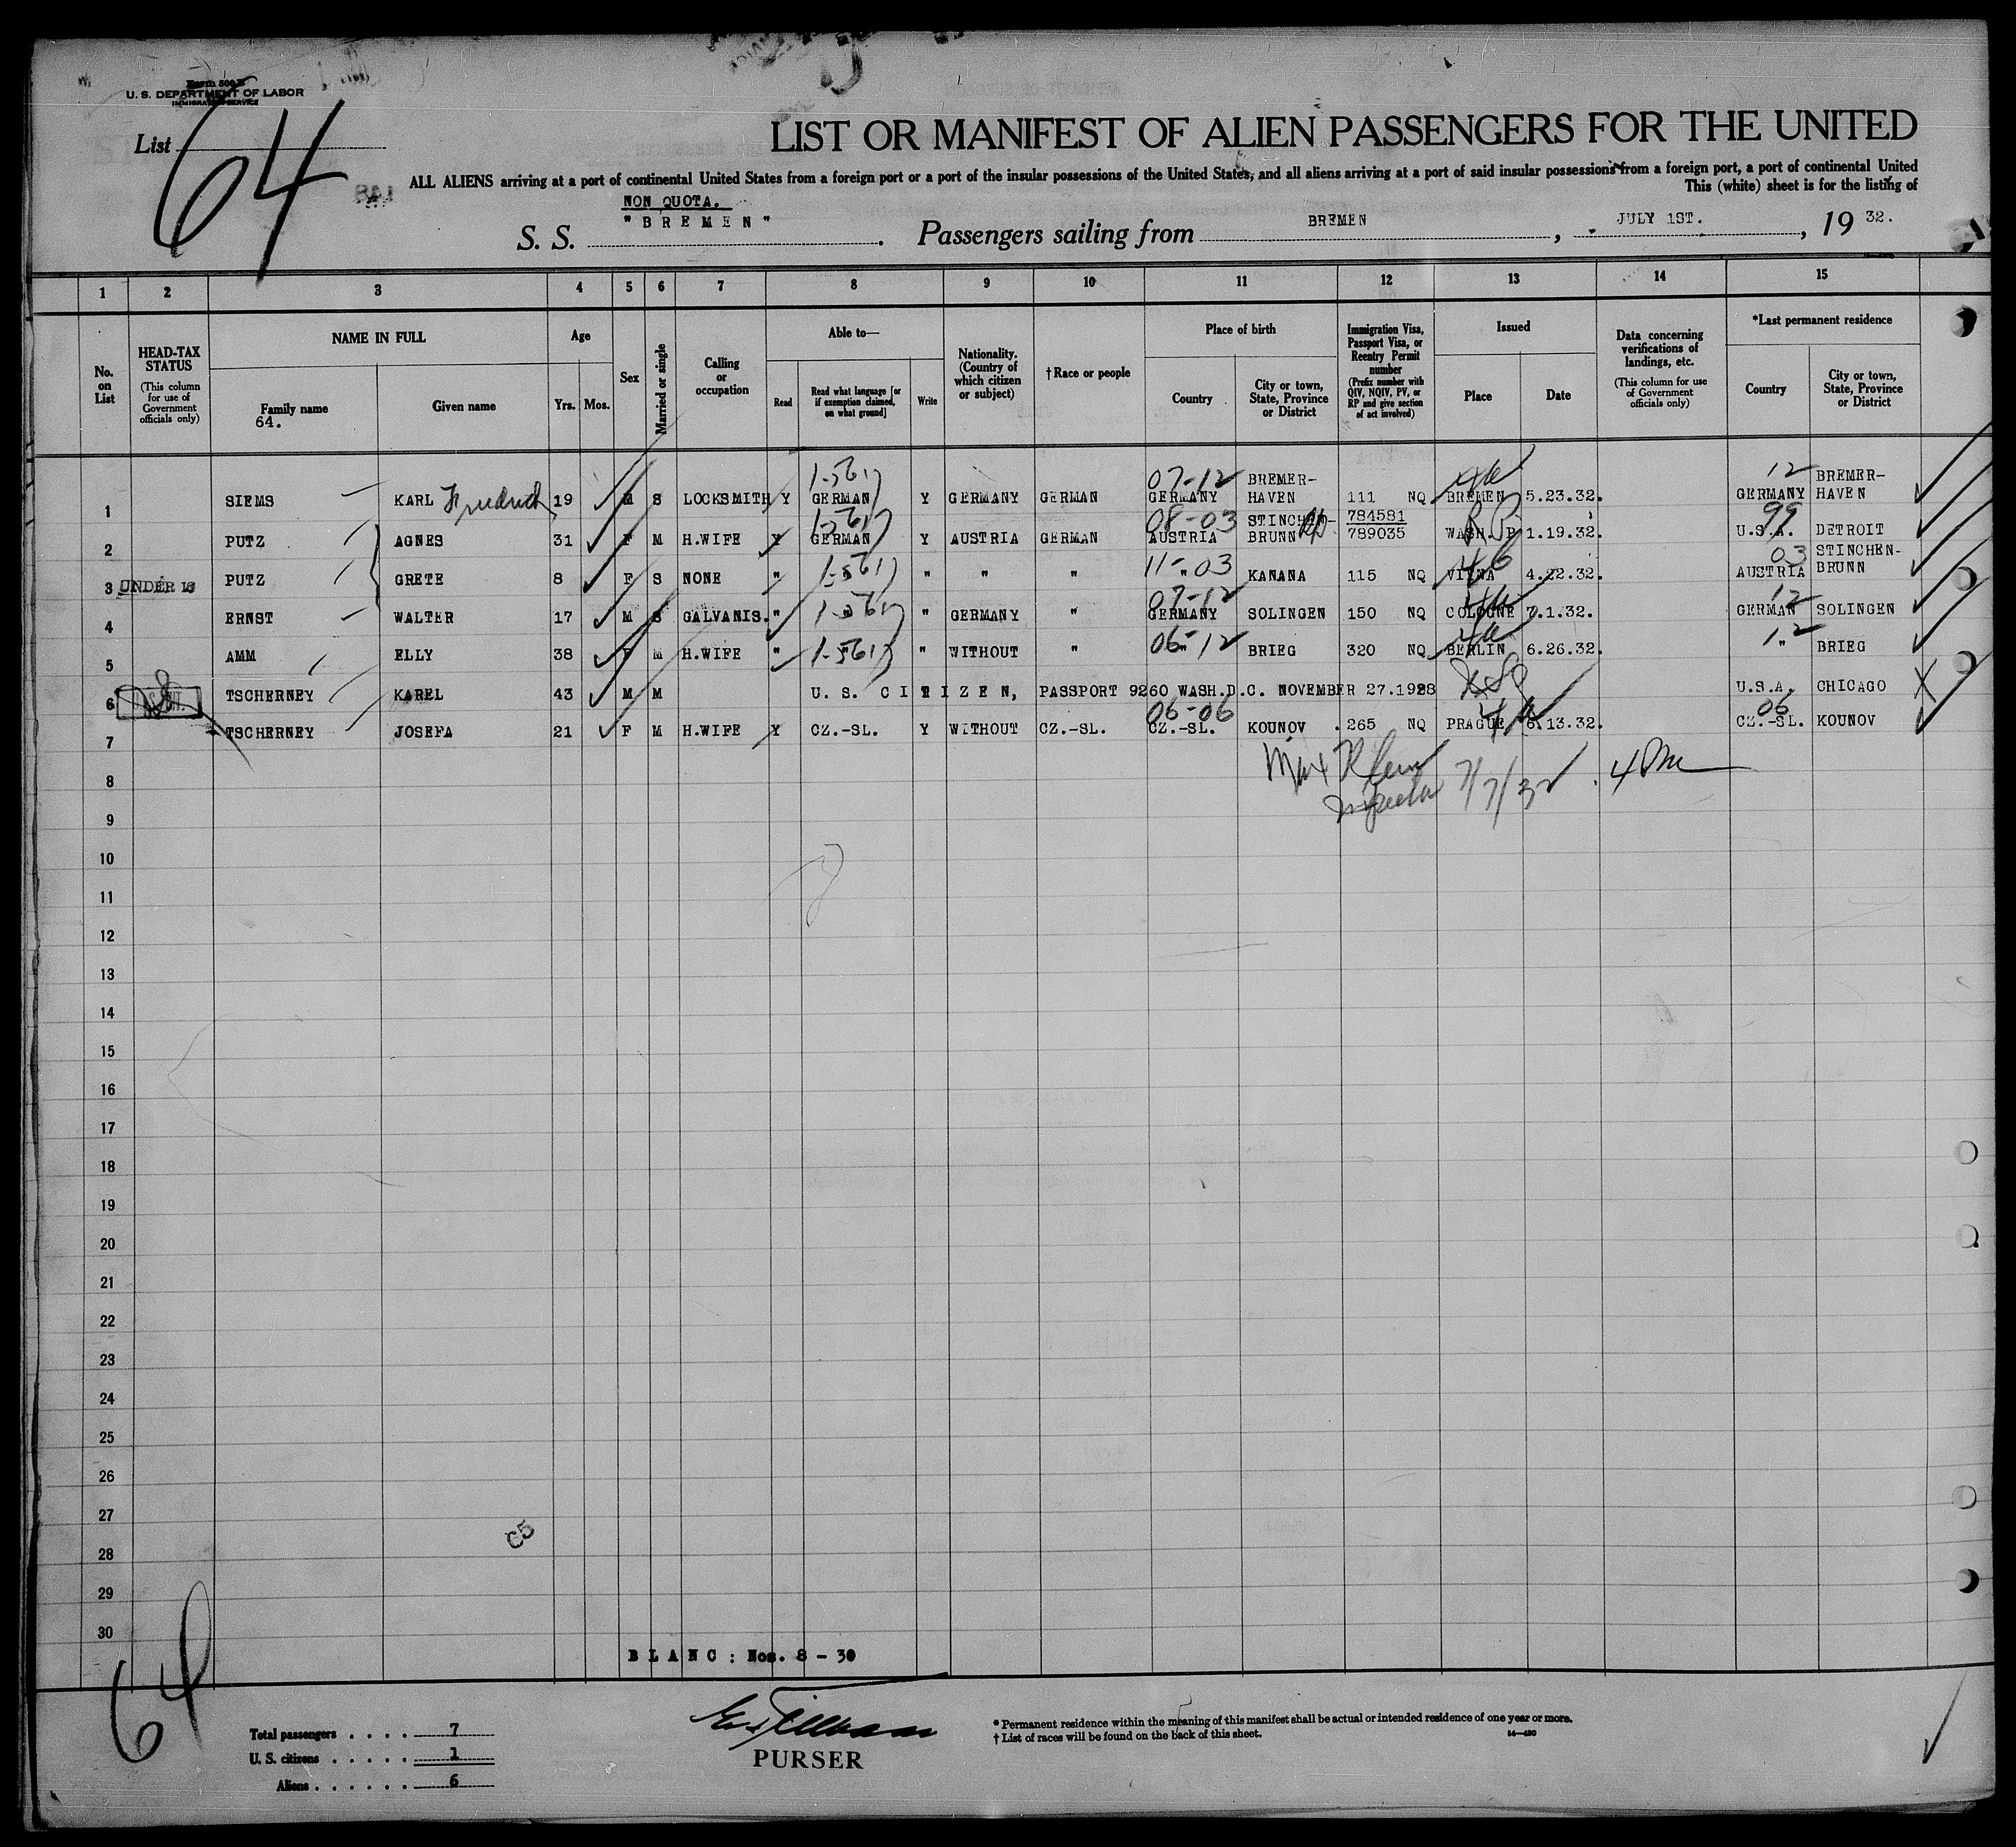 Form 500 B
U. S. DEPARTMENT OF LABOR
IMMIGRATION SERVICE
List 64
LIST OR MANIFEST OF ALIEN PASSENGERS FOR THE UNITED
ALL ALIENS arriving at a port of continental United States from a foreign port or a port of the insular possessions of the United States, and all aliens arriving at a port of said insular possessions from a foreign port, a port of continental United
This (white) sheet is for the listing of
NON QUOTA.
S. S. "BREMEN". Passengers sailing from BREMEN, JULY 1ST., 19 32.
1 2 3 4 5 6 7 8 9 10 11 12 13 14 15
No. on List
HEAD-TAX STATUS
(This column for use of Government officials only)
NAME IN FULL
Family name
64.
Given name
Age
Yrs. Mos.
Sex
Married or single
Calling or occupation
Able to—
Read
Read what language [or if exemption claimed, on what ground]
Write
Nationality. (Country of which citizen or subject)
† Race or people
Place of birth
Country
City or town, State, Province or District
Immigration Visa, Passport Visa, or Reentry Permit number
(Prefix number with QIV, NQIV, PV, or RP and give section of act involved)
Issued
Place
Date
Data concerning verifications of landings, etc.
(This column for use of Government officials only)
*Last permanent residence
Country
City or town, State, Province or District
1 SIEMS KARL Friedrich 19 M S LOCKSMITH Y GERMAN Y GERMANY GERMAN 07-12 GERMANY BREMER-HAVEN 111 NQ BREMEN 5.23.32. 12 GERMANY BREMER-HAVEN
2 PUTZ AGNES 31 F M H.WIFE Y GERMAN Y AUSTRIA GERMAN 08-03 AUSTRIA STINCHEN-BRUNN 784581 789035 WASH. RP 1.19.32. 99 U.S.A. DETROIT
3 UNDER 16 PUTZ GRETE 8 F S NONE " " " " 11-03 " KANANA 115 NQ VIENNA 4.22.32. 03 AUSTRIA STINCHEN-BRUNN
4 ERNST WALTER 17 M S GALVANIS. " " " GERMANY " 07-12 GERMANY SOLINGEN 150 NQ COLOGNE 7.1.32. 12 GERMAN SOLINGEN
5 AMM ELLY 38 F M H.WIFE " " " WITHOUT " 06-12 " BRIEG 320 NQ BERLIN 6.26.32. 12 " BRIEG
6 TSCHERNEY KAREL 43 M M U. S. CITIZEN, PASSPORT 9260 WASH.D.C. NOVEMBER 27.1928 U.S.A. CHICAGO
7 TSCHERNEY JOSEFA 21 F M H.WIFE Y CZ.-SL. Y WITHOUT CZ.-SL. 06-06 CZ.-SL. KOUNOV 265 NQ PRAGUE 6.13.32. 06 CZ.-SL. KOUNOV
8
Inspector 7/7/32
9
10
11
12
13
14
15
16
17
18
19
20
21
22
23
24
25
26
27
28
29
30
C5
BLANC: Nos. 8 - 30
64
Total passengers . . . . 7
U. S. citizens . . . . . 1
Aliens . . . . . . 6
PURSER
* Permanent residence within the meaning of this manifest shall be actual or intended residence of one year or more.
† List of races will be found on the back of this sheet.
14—420